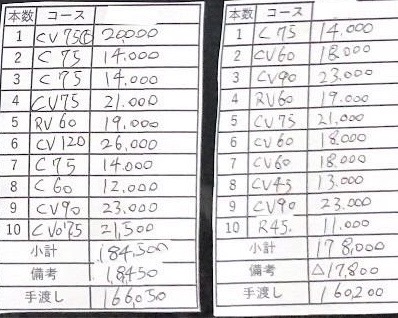 本数 コース
1 CV75① 20,000
2 C75 14,000
3 C75 14,000
4 CV75 21,000
5 RV60 19,000
6 CV120 26,000
7 C75 14,000
8 C60 12,000
9 CV90 23,000
10 CV075 21,500
小計 184,500
備考 18,450
手渡し 166,050
本数 コース
1 C75 14,000
2 CV60 18,000
3 CV90 23,000
4 RV60 19,000
5 CV75 21,000
6 CV60 18,000
7 CV60 18,000
8 CV45 13,000
9 CV90 23,000
10 R45. 11,000
小計 178,000
備考 △17,800
手渡し 160,200